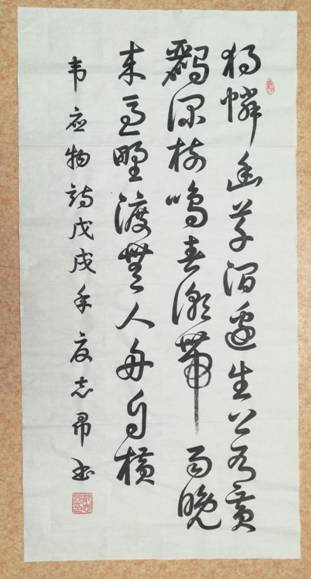 独憐幽草涧邊生上有黄
鸝深树鸣春潮帶雨晚
来急野渡無人舟自横
韦应物詩戊戌年夏志昂书